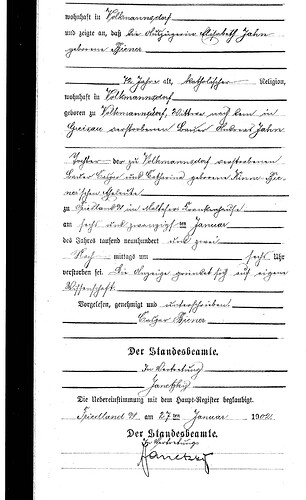 wohnhaft in Volkmannsdorf
und zeigte an, daß die Auszüglerin Elisabeth Jahn
geborene Thiener
72 Jahre alt, katholischer Religion,
wohnhaft in Volkmannsdorf
geboren zu Volkmannsdorf, Wittwe nach dem in
verstorbenen Bauer Andreas Jahn
Tochter der zu Volkmannsdorf verstorbenen
Bauer Caspar und Catharina geborene
Eheleute
zu Friedland im Malteser Krankenhause
am sechs und zwanzigsten Januar
des Jahres tausend neunhundert und zwei
Nach mittags um sechs Uhr
verstorben sei. Die Anzeige gründet sich auf eigene
Wissenschaft.
Vorgelesen, genehmigt und unterschrieben.
Caspar Thiener
Der Standesbeamte.
In Vertretung
Janetzky
Die Uebereinstimmung mit dem Haupt-Register beglaubigt.
Friedland am 27ten Januar 1902
Der Standesbeamte.
In Vertretung
Janetzky